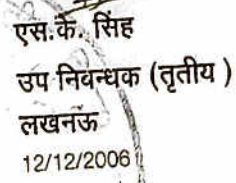 एस.के. सिंह
उप निवन्धक (तृतीय )
लखनऊ
12/12/2006